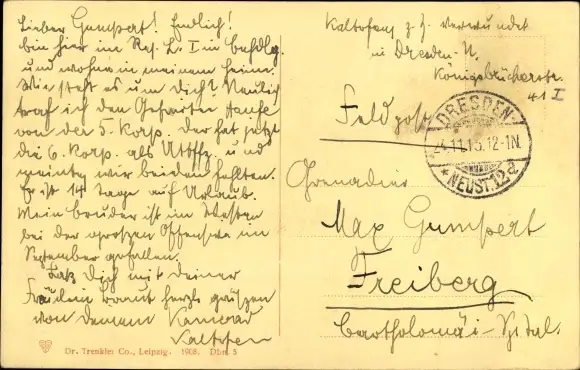 Lieber Gumpert! Endlich!
bin hier im Res. L. I in Behdlg.
und wohne in meinem Heim.
Wie steht es um dich? Neulich
traf ich den Gefreiten
von der 5. Korp. der hat jetzt
die 6. Korp. als Utffz. und
meinte, wir beiden fehlten.
Er ist 14 Tage auf Urlaub.
Mein Bruder ist im Westen
bei der großen Offensive im
September gefallen.
Laß Dich mit deiner
Fräulein Braut herzl. grüßen
von deinem Kamerad
Kaltofen
Dr. Trenkler Co., Leipzig. 1908. Dbn. 5
Kaltofen z. Z. verwundet
in Dresden-N.
Königsbrückerstr.
41 I
Feldpost
DRESDEN-
24.11.15.12-1N.
* NEUST. 12 d
Grenadier
Max Gumpert
Freiberg
Bartholomäi-Spital.